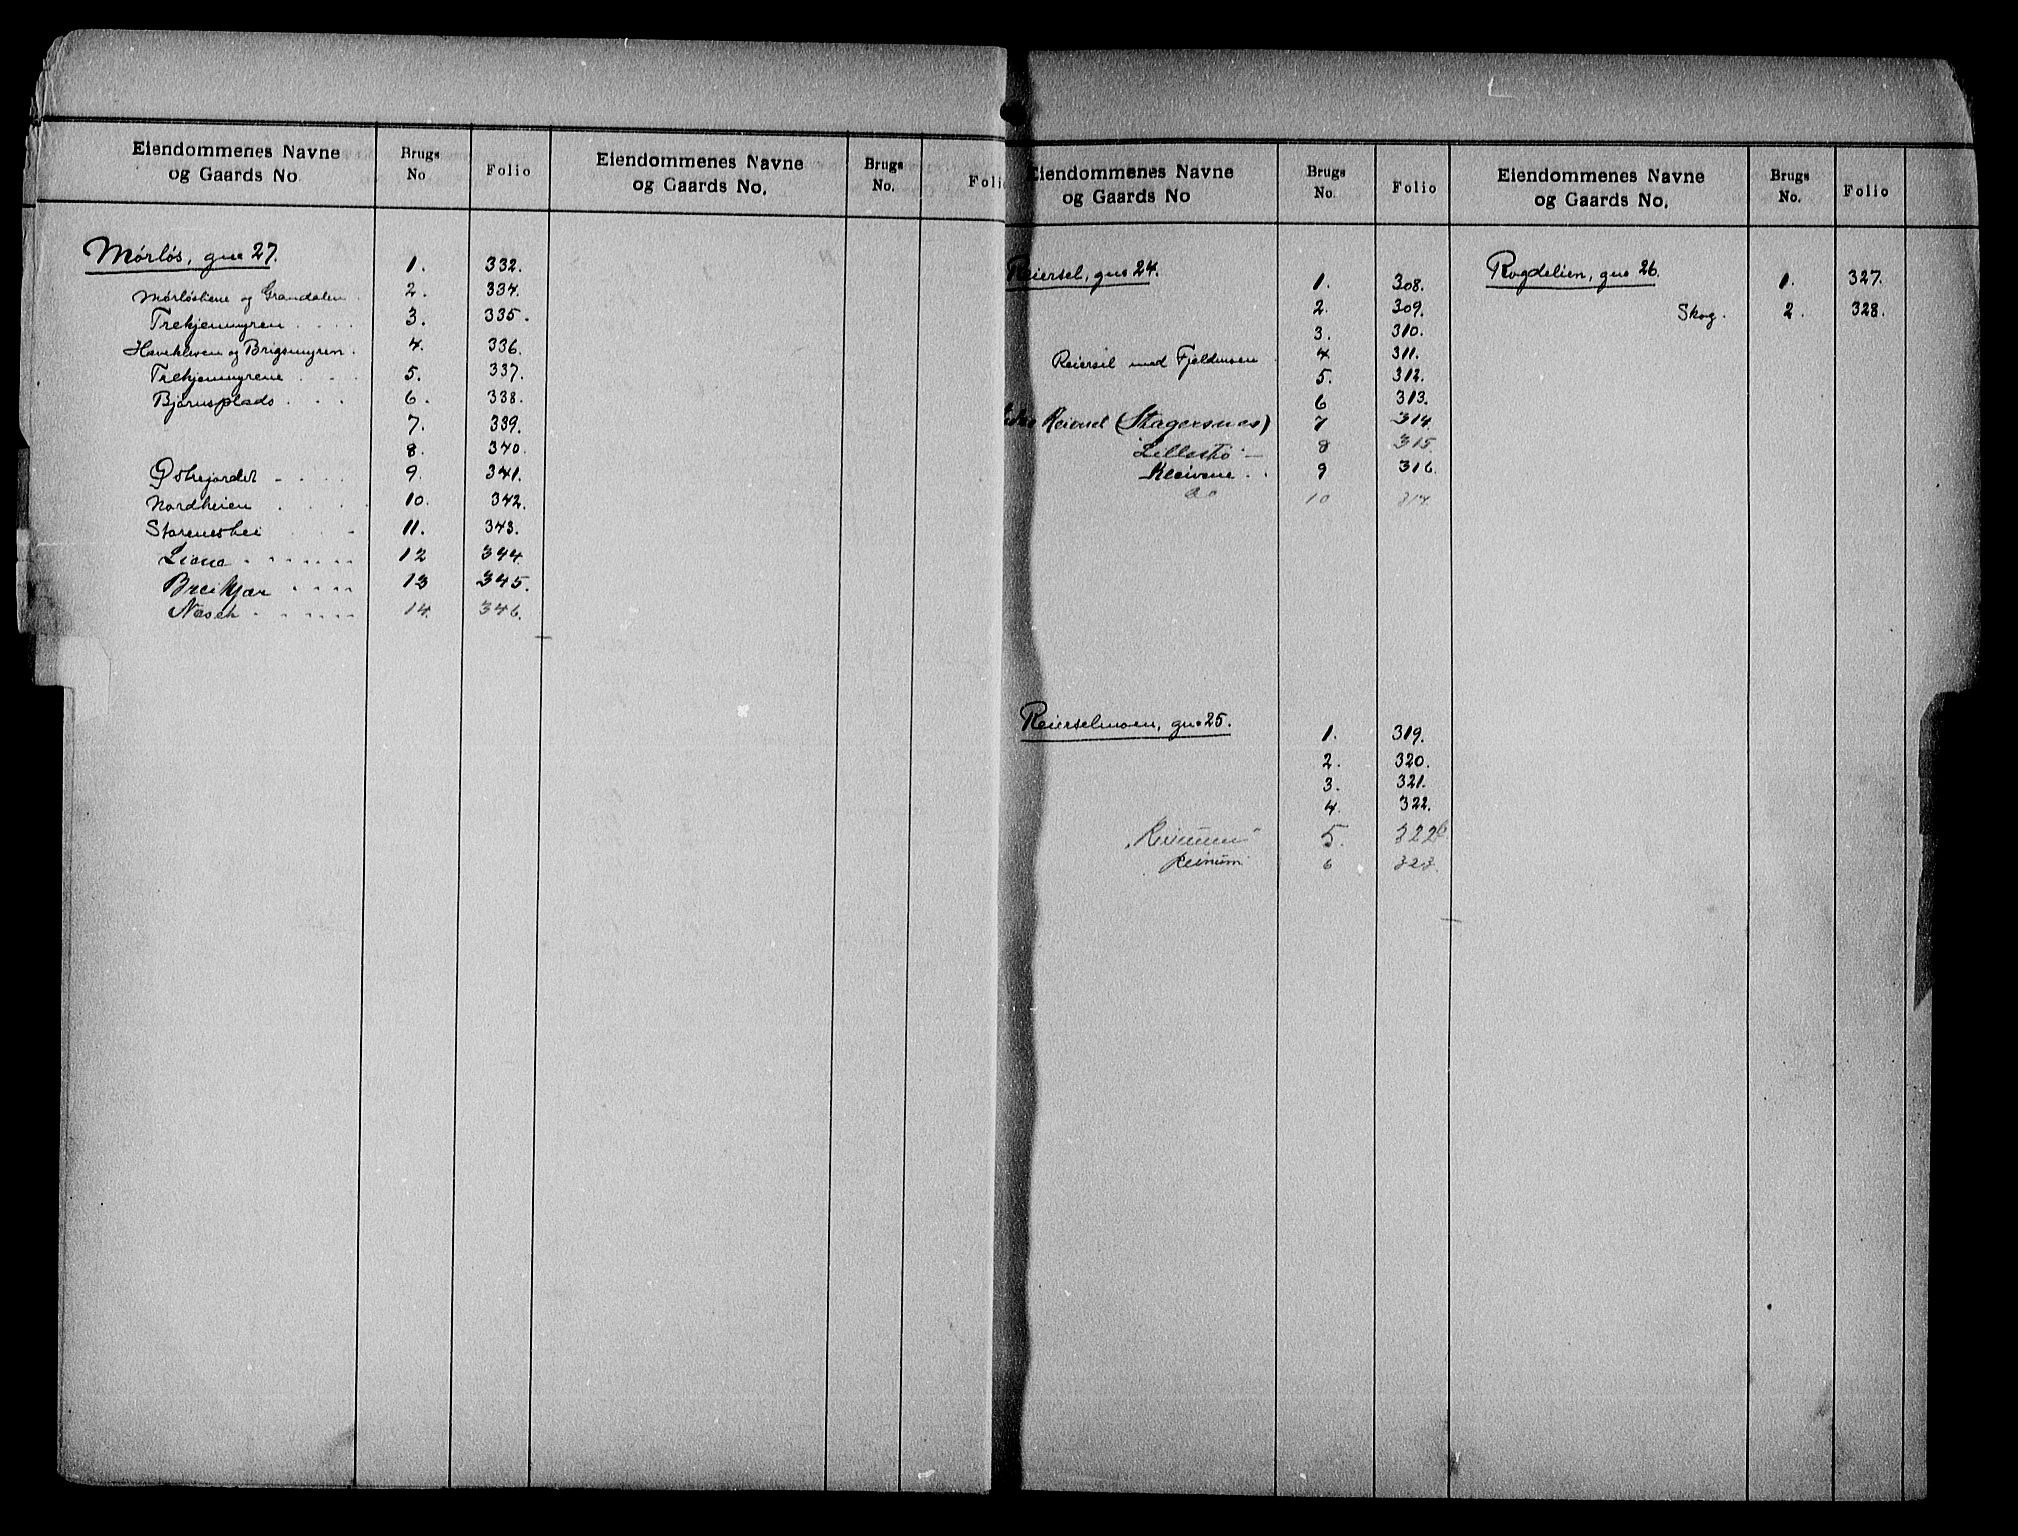 Eiendommenes Navne og Gaards No. Brugs No Folio
Eiendommenes Navne og Gaards No. Brugs No. Folio
Mørløs, gne 27. 1. 332.
Mørløsliene og Grandalen 2. 334.
Trekjenmyren 3. 335.
Havekleven og Brigsmyren 4. 336.
Trekjenmyrene 5. 337.
Bjørnsplads 6. 338.
7. 339.
8. 340.
Østrejordet 9. 341.
Nordheien 10. 342.
Storeneshei 11. 343.
Liane 12 344.
Breikjær 13 345.
14. 346.
Eiendommenes Navne og Gaards No Brugs No. Folio
Eiendommenes Navne og Gaards No. Brugs No. Folio
Reiersel, gne 24. 1. 308.
2. 309.
3. 310.
Reiersel med Fjeldmoen 4 311.
5. 312.
6 313.
(Stagersnes) 7 314.
Lillestø 8 315.
Kleivene 9 316.
do 10 317.
Reierselmoen, gne 25. 1. 319.
2. 320.
3. 321.
4. 322.
5. 322b
Reinum 6 323.
Rogdelien, gne 26. 1. 327.
Skog. 2. 328.